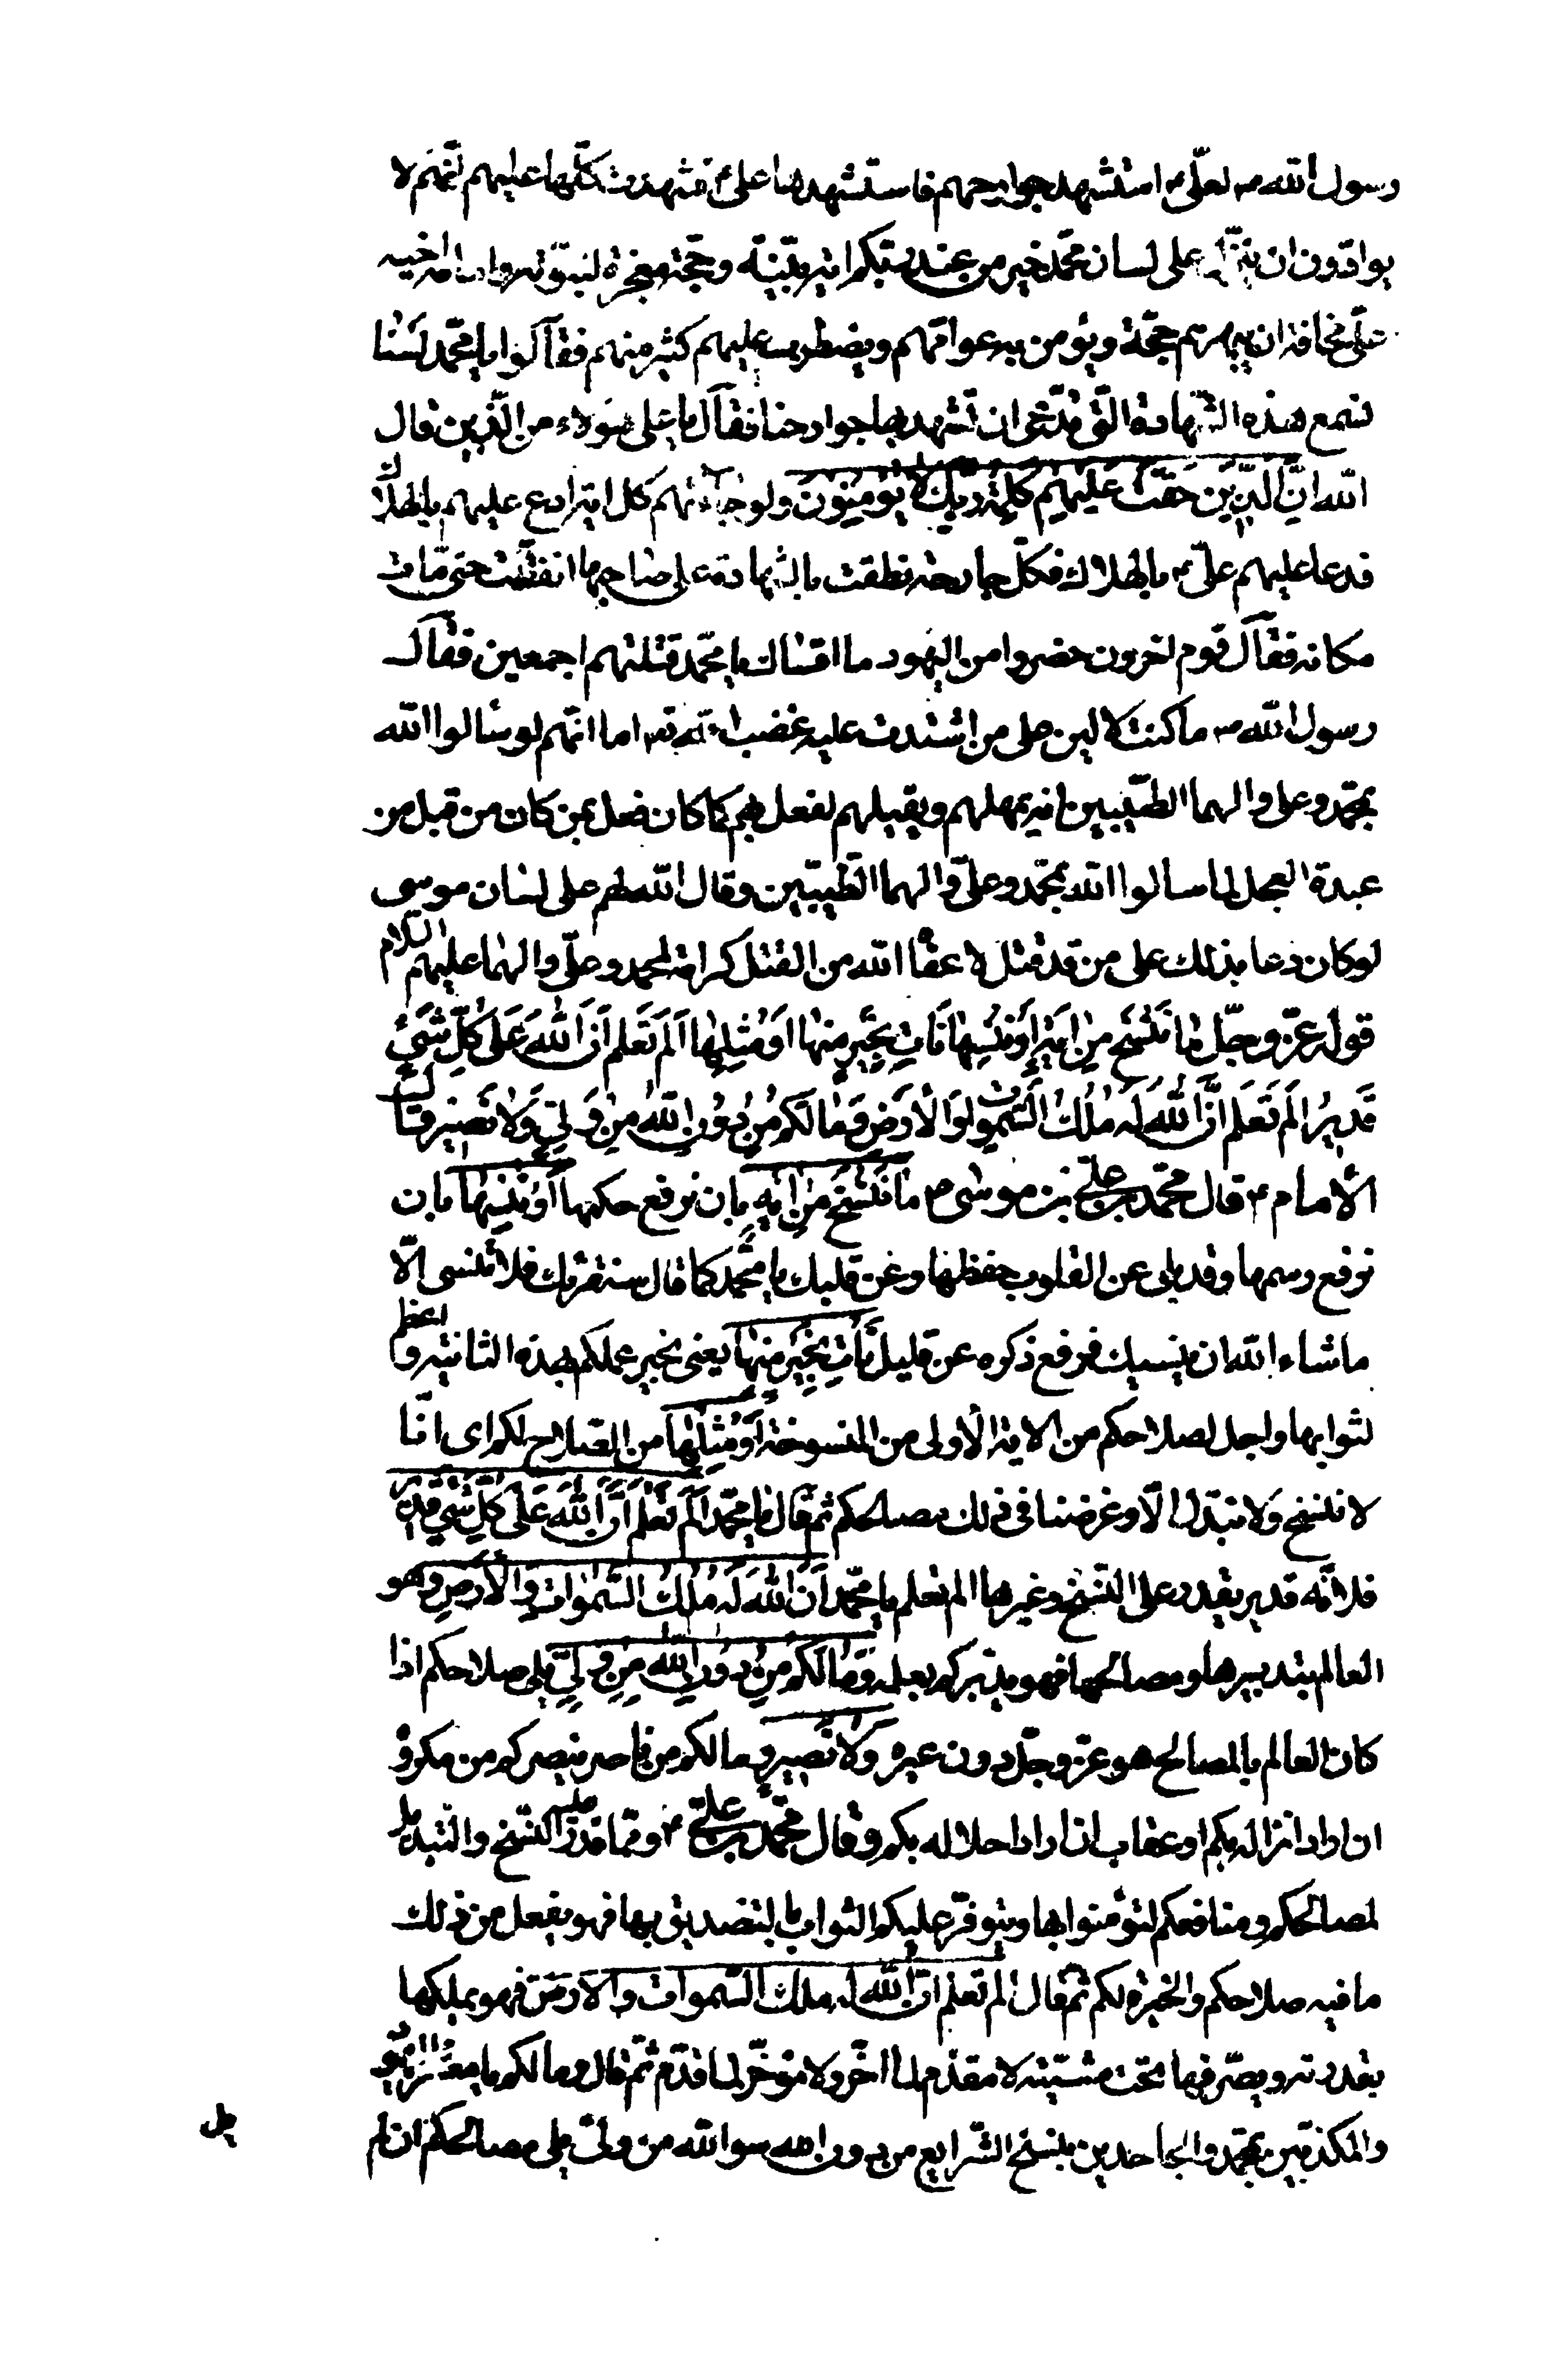 رسول الله ص لعلّى ع استشهد جوارحهم فاستشهدها علىّ ع فشهدت كلّها عليهم انّهم لا
يوادّون ان ينزّل على لسان محمّد خير من عند ربّكم اية بيّنة وحجّة معجزة لنبوّته وامامة اخيه
علّى مخافة ان يبهرهم حجّة ويؤمن به عوامّهم ويضطرب عليهم كثير منهم فقالوا يا محمّد لسنا
نسمع هذه الشّهادة الّتى تدّعى ان تشهد بها جوارحنا فقال يا على هؤلاء من الّذين قال
الله انّ الّذين حقّت عليهم كلمة ربّك لا يؤمنون ولو جاءتهم كل اية ادع عليهم بالهلاك
فدعا عليهم علىّ ع بالهلاك فكلّ جارحة نطقت بالشهادة على صاحبها انفتّت حتى مات
مكانه فقال قوم اخرون حضروا من اليهود ما اقساك يا محمّد قتلتهم اجمعين فقال
رسول الله ص ما كنت لالين على من اشتدت عليه غضب الله تع اما انّهم لو سالوا الله
بمحمّد وعلى والهما الطّيّبين ان يمهلهم ويقيلهم لفعل بهم كما كان فعل بمن كان من قبل من
عبدة العجل لما سالوا الله بمحمّد وعلىّ والهما الطّيّبين وقال الله لهم على لسان موسى
لو كان دعا بذلك على من قد قتل لاعفا الله من القتل كرامة لمحمد وعلّى والهما عليهم السلام
قوله عزّ وجلّ ما ننسخ من اية او ننسها نات بخير منها او مثلها الم تعلم انّ الله على كلّ شىء
قدير الم تعلم انّ الله له ملك السّموات والارض وما لكم من دون الله من ولىّ ولا نصير قال
الامام ع قال محمّد بن علىّ بن موسى ع ما ننسخ من اية بان نرفع حكمها او ننسها بان
نرفع رسمها وقد بلى عن القلوب حفظها وعن قلبك يا محمّد كما قال سنقرئك فلا تنسى الّا
ما شاء الله ان ينسيك فرفع ذكره عن قلبك نات بخير منها يعنى بخير عملكم بهذه الثانية واعظم
لثوابها واجل لصلاحكم من الاية الاولى من المنسوخة او مثلها من الصّلاح لكم اى انّا
لا ننسخ ولا نبدّل الّا وغرضنا فى ذلك مصلحكم ثم قال يا محمّد الم تعلم انّ الله على كلّ شىء قدير
فلانّه قدير يقدر على النّسخ وغيرها الم تعلم يا محمّد انّ الله له ملك السّموات والارض وهو
العالم بتدبيرها ومصالحها فهو يدبّركم بعلمه وما لكم من دون الله من ولىّ يلى صلاحكم اذا
كان العالم بالمصالح هو عزّ وجلّ دون غيره ولا نصير وما لكم من ناصر ينصركم من مكروه
ان اراد انزاله بكم او عقاب ان اراد احلاله بكم وقال محمّد بن علىّ ع وممّا قدّر عليه النّسخ والتّبديل
لمصالحكم ومنافعكم لتؤمنوا بها ويتوفّر عليكم الثواب بالتصديق بها فهو يفعل من ذلك
ما فيه صلاحكم والخيرة لكم ثم قال الم تعلم انّ الله له ملك السّموات والارض فهو يملكها
بقدرته ويصرّفها تحت مشيّته لا مقدّم لما اخّر ولا مؤخّر لما قدّم ثم قال وما لكم يا معشر اليهود
والمكذّبين بمحمّد والجاحدين بنسخ الشّرايع من دون الله سوا الله من ولىّ يلى مصالحكم ان لم
يل